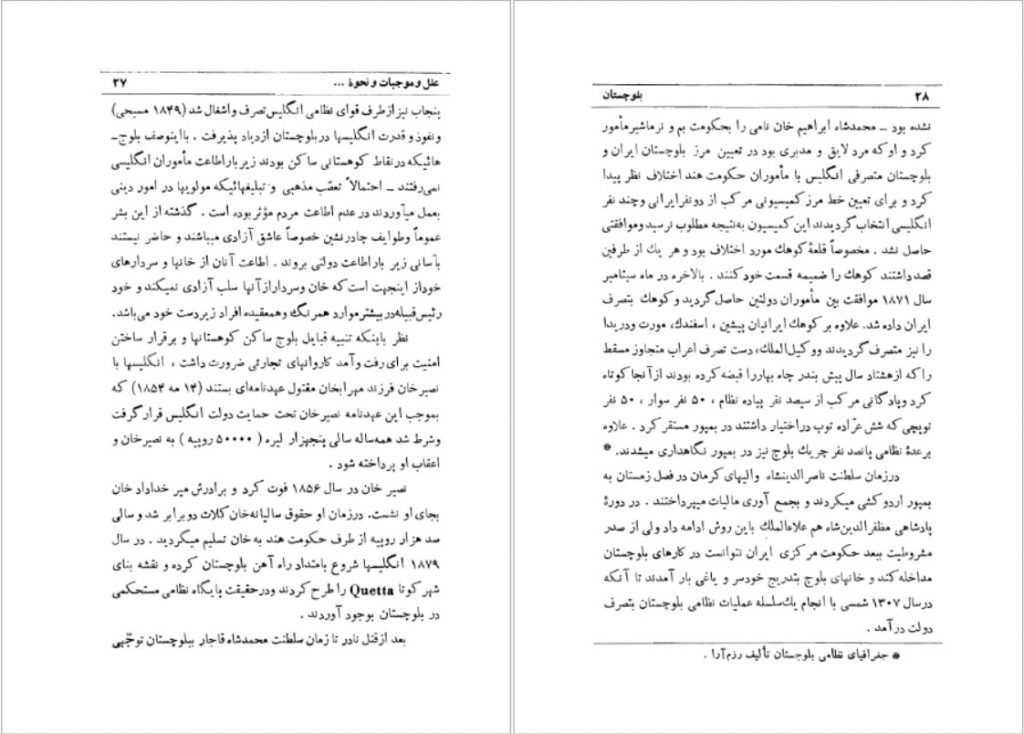 علل و موجبات و نحوهٔ ... ۲۷
پنجاب نیز از طرف قوای نظامی انگلیس تصرف و اشغال شد (۱۸۴۹ مسیحی)
و نفوذ و قدرت انگلیسها در بلوچستان ازدیاد پذیرفت . با اینوصف بلوچ‌ـ
هائیکه در نقاط کوهستانی ساکن بودند زیر بار اطاعت مأموران انگلیسی
نمی‌رفتند ـ احتمالاً تعصّب مذهبی و تبلیغهائیکه مولویها در امور دینی
بعمل میآوردند در عدم اطاعت مردم مؤثر بوده است . گذشته از این بشر
عموماً و طوایف چادرنشین خصوصاً عاشق آزادی میباشند و حاضر نیستند
بآسانی زیر بار اطاعت دولتی بروند . اطاعت آنان از خانها و سردارهای
خود از اینجهت است که خان و سردار از آنها سلب آزادی نمیکند و خود
رئیس قبیله در بیشتر موارد همرنگ و همعقیده افراد زیردست خود می‌باشد.
نظر باینکه تنبیه قبایل بلوچ ساکن کوهستانها و برقرار ساختن
امنیت برای رفت و آمد کاروانهای تجارتی ضرورت داشت ، انگلیسها با
نصیرخان فرزند مهرابخان مقتول عهدنامه‌ای بستند (۱۴ مه ۱۸۵۴) که
بموجب این عهدنامه نصیرخان تحت حمایت دولت انگلیس قرار گرفت
و شرط شد همه‌ساله سالی پنجهزار لیره ( ۵۰۰۰۰ روپیه ) به نصیرخان و
اعقاب او پرداخته شود .
نصیر خان در سال ۱۸۵۶ فوت کرد و برادرش میر خداداد خان
بجای او نشست. در زمان او حقوق سالیانه خان کلات دو برابر شد و سالی
صد هزار روپیه از طرف حکومت هند به خان تسلیم میگردید . در سال
۱۸۷۹ انگلیسها شروع بامتداد راه آهن بلوچستان کرده و نقشه بنای
شهر کوتا Quetta را طرح کردند و در حقیقت پایگاه نظامی مستحکمی
در بلوچستان بوجود آوردند .
بعد از قتل نادر تا زمان سلطنت محمدشاه قاجار ببلوچستان توجّهی
۲۸ بلوچستان
نشده بود ـ محمدشاه ابراهیم خان نامی را بحکومت بم و نرماشیر مأمور
کرد و او که مرد لایق و مدبری بود در تعیین مرز بلوچستان ایران و
بلوچستان متصرفی انگلیس با مأموران حکومت هند اختلاف نظر پیدا
کرد و برای تعیین خط مرز کمیسیونی مرکب از دو نفر ایرانی و چند نفر
انگلیسی انتخاب گردیدند این کمیسیون به‌نتیجه مطلوب نرسید و موافقتی
حاصل نشد . مخصوصاً قلعهٔ کوهك مورد اختلاف بود و هر یك از طرفین
قصد داشتند کوهك را ضمیمه قسمت خود کنند . بالاخره در ماه سپتامبر
سال ۱۸۷۱ موافقت بین مأموران دولتین حاصل گردید و کوهك بتصرف
ایران داده شد. علاوه بر کوهك ایرانیان پیشین ، اسفندك، مورت و دریدا
را نیز متصرف گردیدند و وکیل‌الملك، دست تصرف اعراب متجاوز مسقط
را که از هشتاد سال پیش بندر چاه بهار را قبضه کرده بودند از آنجا کوتاه
کرد و پادگانی مرکب از سیصد نفر پیاده نظام ، ۵۰ نفر سوار ، ۵۰ نفر
توپچی که شش عرّاده توپ در اختیار داشتند در بمپور مستقر کرد . علاوه
بر عدهٔ نظامی پانصد نفر چریك بلوچ نیز در بمپور نگاهداری میشدند. *
در زمان سلطنت ناصرالدینشاه والیهای کرمان در فصل زمستان به
بمپور اردو کشی میکردند و بجمع آوری مالیات میپرداختند . در دورهٔ
پادشاهی مظفرالدین‌شاه هم علاءالملك باین روش ادامه داد ولی از صدر
مشروطیت ببعد حکومت مرکزی ایران نتوانست در کارهای بلوچستان
مداخله کند و خانهای بلوچ بتدریج خودسر و یاغی بار آمدند تا آنکه
در سال ۱۳۰۷ شمسی با انجام یك سلسله عملیات نظامی بلوچستان بتصرف
دولت در آمد .
* جغرافیای نظامی بلوچستان تألیف رزم‌آرا .